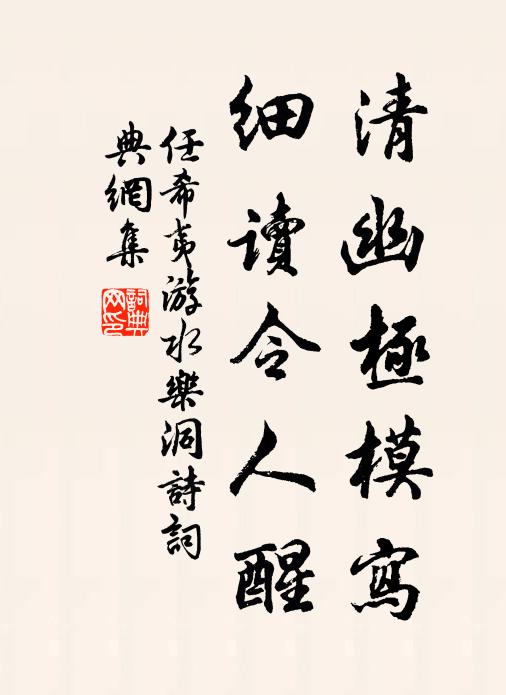 清幽極模寫
細讀令人醒
任希夷游水樂洞詩詞
典網集
詞典網印